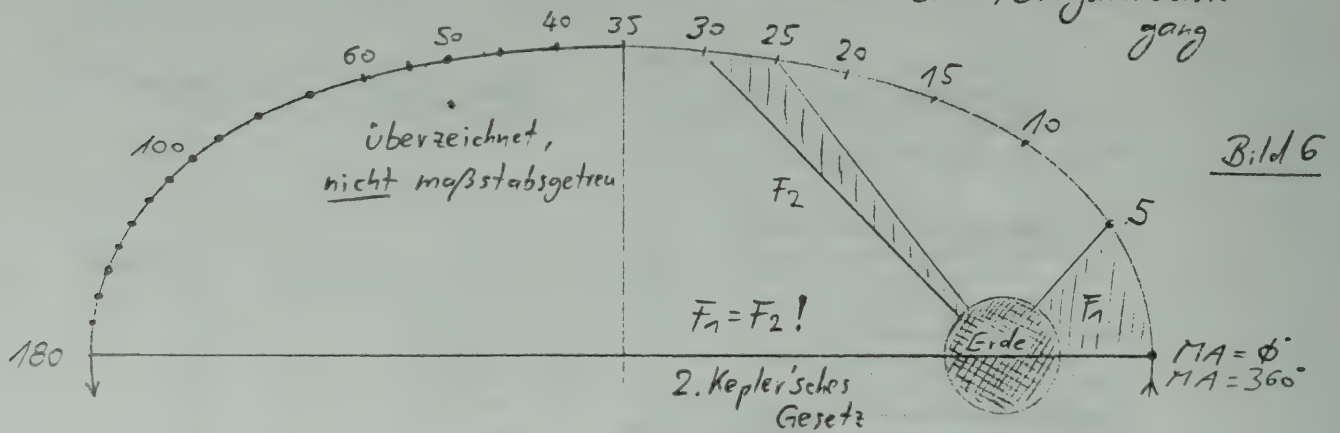 gang
60 50 40 35 30 25 20 15 10 5
100
180
überzeichnet,
nicht maßstabsgetreu
Bild 6
F₂
F₁
F₁ = F₂ !
Erde
MA = 0°
MA = 360°
2. Kepler'sches
Gesetz